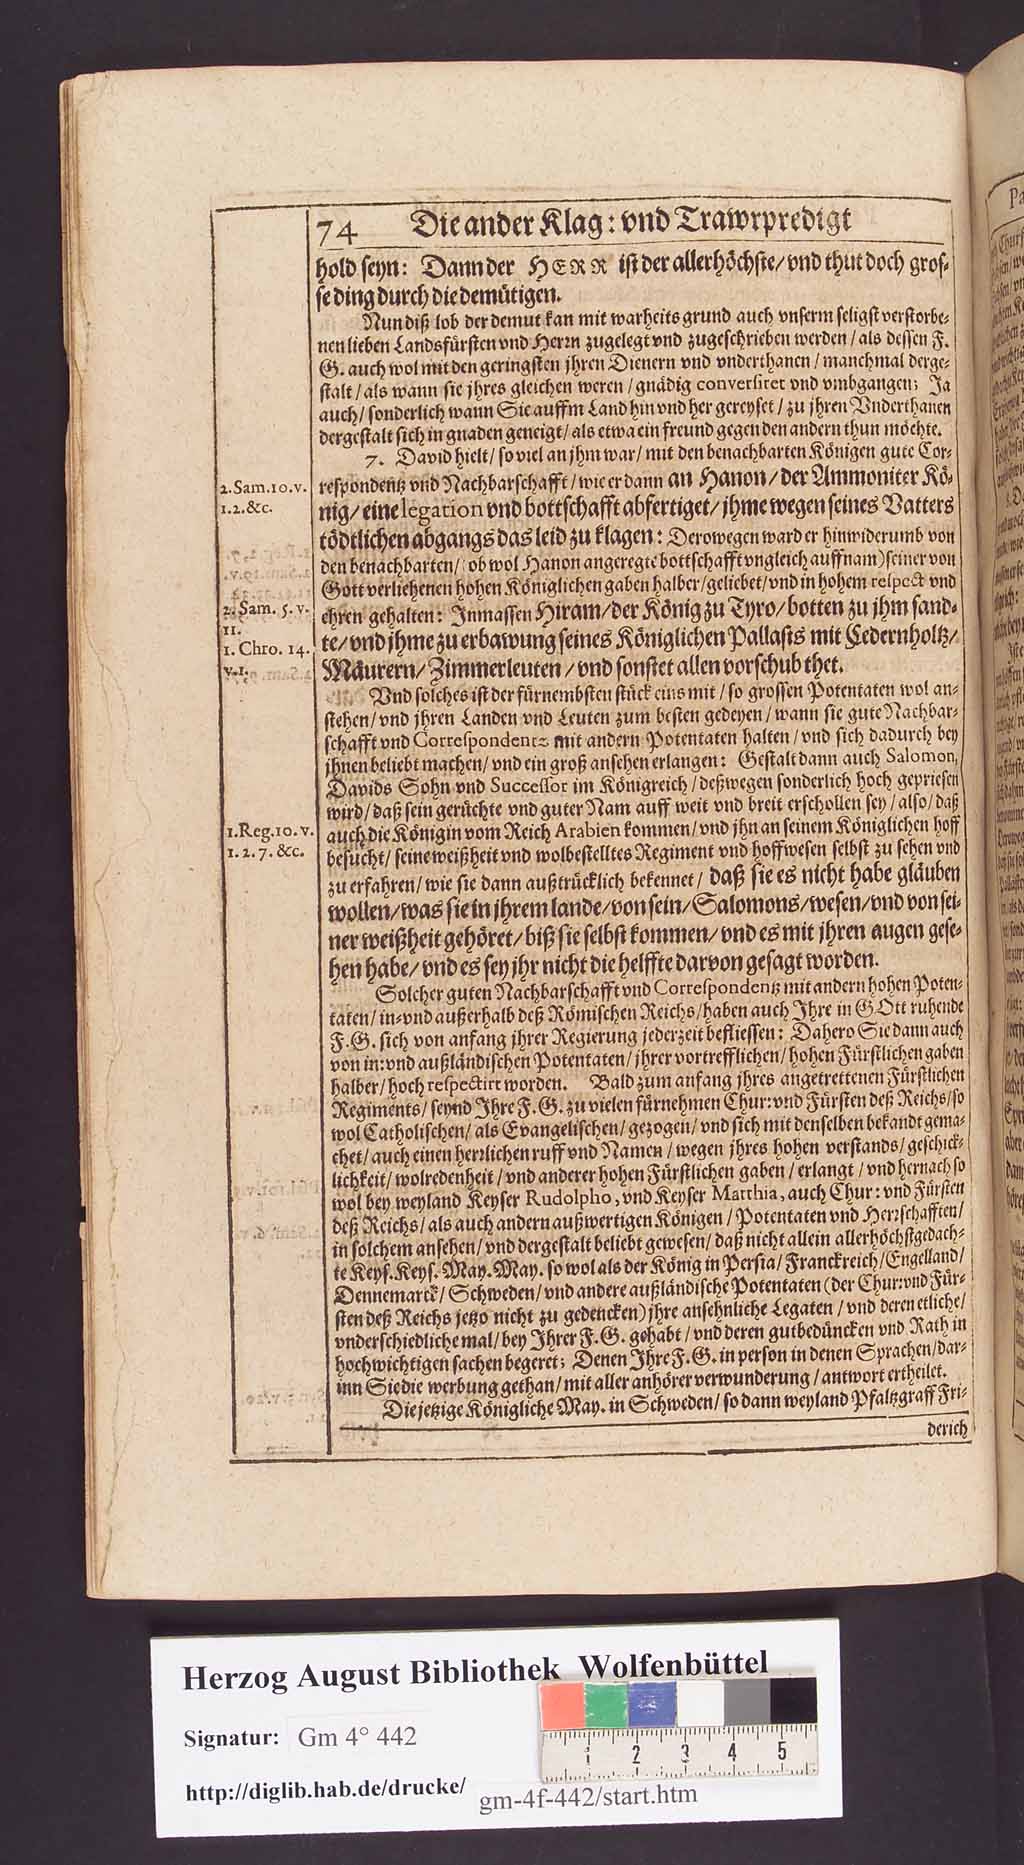 74 Die ander Klag: vnd Trawrpredigt
hold seyn: Dann der HERR ist der allerhöchste/ vnd thut doch gros-
se ding durch die demütigen.
Nun diß lob der demut kan mit warheits grund auch vnserm seligst verstorbe-
nen lieben Landsfürsten vnd Herrn zugelegt vnd zugeschrieben werden/ als dessen F.
G. auch wol mit den geringsten jhren Dienern vnd vnderthanen/ manchmal derge-
stalt/ als wann sie jhres gleichen weren/ gnädig conversiret vnd vmbgangen; Ja
auch/ sonderlich wann Sie auffm Land hin vnd her gereyset/ zu jhren Vnderthanen
dergestalt sich in gnaden geneigt/ als etwa ein freund gegen den andern thun möchte.
7. David hielt/ so viel an jhm war/ mit den benachbarten Königen gute Cor-
2. Sam. 10. v.
1. 2. &c.
respondentz vnd Nachbarschafft/ wie er dann an Hanon/ der Ammoniter Kö-
nig/ eine legation vnd bottschafft abfertiget/ jhme wegen seines Vatters
tödtlichen abgangs das leid zu klagen: Derowegen ward er hinwiderumb von
den benachbarten/ (ob wol Hanon angeregte bottschafft vngleich auffnam) seiner von
Gott verliehenen hohen Königlichen gaben halber/ geliebet/ vnd in hohem respect vnd
2. Sam. 5. v.
11.
1. Chro. 14.
v. 1.
ehren gehalten: Inmassen Hiram/ der König zu Tyro/ botten zu jhm sand-
te/ vnd jhme zu erbawung seines Königlichen Pallasts mit Cedernholtz/
Mäurern/ Zimmerleuten/ vnd sonstet allen vorschub thet.
Vnd solches ist der fürnembsten stück eins mit/ so grossen Potentaten wol an-
stehen/ vnd jhren Landen vnd Leuten zum besten gedeyen/ wann sie gute Nachbar-
schafft vnd Correspondentz mit andern Potentaten halten/ vnd sich dadurch bey
jhnen beliebt machen/ vnd ein groß ansehen erlangen: Gestalt dann auch Salomon,
Davids Sohn vnd Successor im Königreich/ deßwegen sonderlich hoch gepriesen
wird/ daß sein gerüchte vnd guter Nam auff weit vnd breit erschollen sey/ also/ daß
1. Reg. 10. v.
1. 2. 7. &c.
auch die Königin vom Reich Arabien kommen/ vnd jhn an seinem Königlichen hoff
besucht/ seine weißheit vnd wolbestelltes Regiment vnd hoffwesen selbst zu sehen vnd
zu erfahren/ wie sie dann außtrücklich bekennet/ daß sie es nicht habe gläuben
wollen/ was sie in jhrem lande/ von sein/ Salomons/ wesen/ vnd von sei-
ner weißheit gehöret/ biß sie selbst kommen/ vnd es mit jhren augen gese-
hen habe/ vnd es sey jhr nicht die helffte darvon gesagt worden.
Solcher guten Nachbarschafft vnd Correspondentz mit andern hohen Poten-
taten/ in- vnd außerhalb deß Römischen Reichs/ haben auch Ihre in GOtt ruhende
F. G. sich von anfang jhrer Regierung jederzeit beflissen: Dahero Sie dann auch
von in: vnd außländischen Potentaten/ jhrer vortrefflichen/ hohen Fürstlichen gaben
halber/ hoch respectirt worden. Bald zum anfang jhres angetrettenen Fürstlichen
Regiments/ seynd Ihre F. G. zu vielen fürnehmen Chur: vnd Fürsten deß Reichs/ so
wol Catholischen/ als Evangelischen/ gezogen/ vnd sich mit denselben bekandt gema-
chet/ auch einen herrlichen ruff vnd Namen/ wegen jhres hohen verstands/ geschick-
lichkeit/ wolredenheit/ vnd anderer hohen Fürstlichen gaben/ erlangt/ vnd hernach so
wol bey weyland Keyser Rudolpho, vnd Keyser Matthia, auch Chur: vnd Fürsten
deß Reichs/ als auch andern außwertigen Königen/ Potentaten vnd Herrschafften/
in solchem ansehen/ vnd dergestalt beliebt gewesen/ daß nicht allein allerhöchstgedach-
te Keys. Keys. May. May. so wol als der König in Persia/ Franckreich/ Engelland/
Dennemarck/ Schweden/ vnd andere außländische Potentaten (der Chur: vnd Für-
sten deß Reichs jetzo nicht zu gedencken) jhre ansehnliche Legaten/ vnd deren etliche/
vnderschiedliche mal/ bey Ihrer F. G. gehabt/ vnd deren gutbedüncken vnd Rath in
hochwichtigen sachen begeret; Denen Ihre F. G. in person in denen Sprachen/ dar-
inn Sie die werbung gethan/ mit aller anhörer verwunderung/ antwort ertheilet.
Die jetzige Königliche May. in Schweden/ so dann weyland Pfaltzgraff Fri-
derich
Herzog August Bibliothek Wolfenbüttel
Signatur: Gm 4° 442
http://diglib.hab.de/drucke/ gm-4f-442/start.htm
1 2 3 4 5